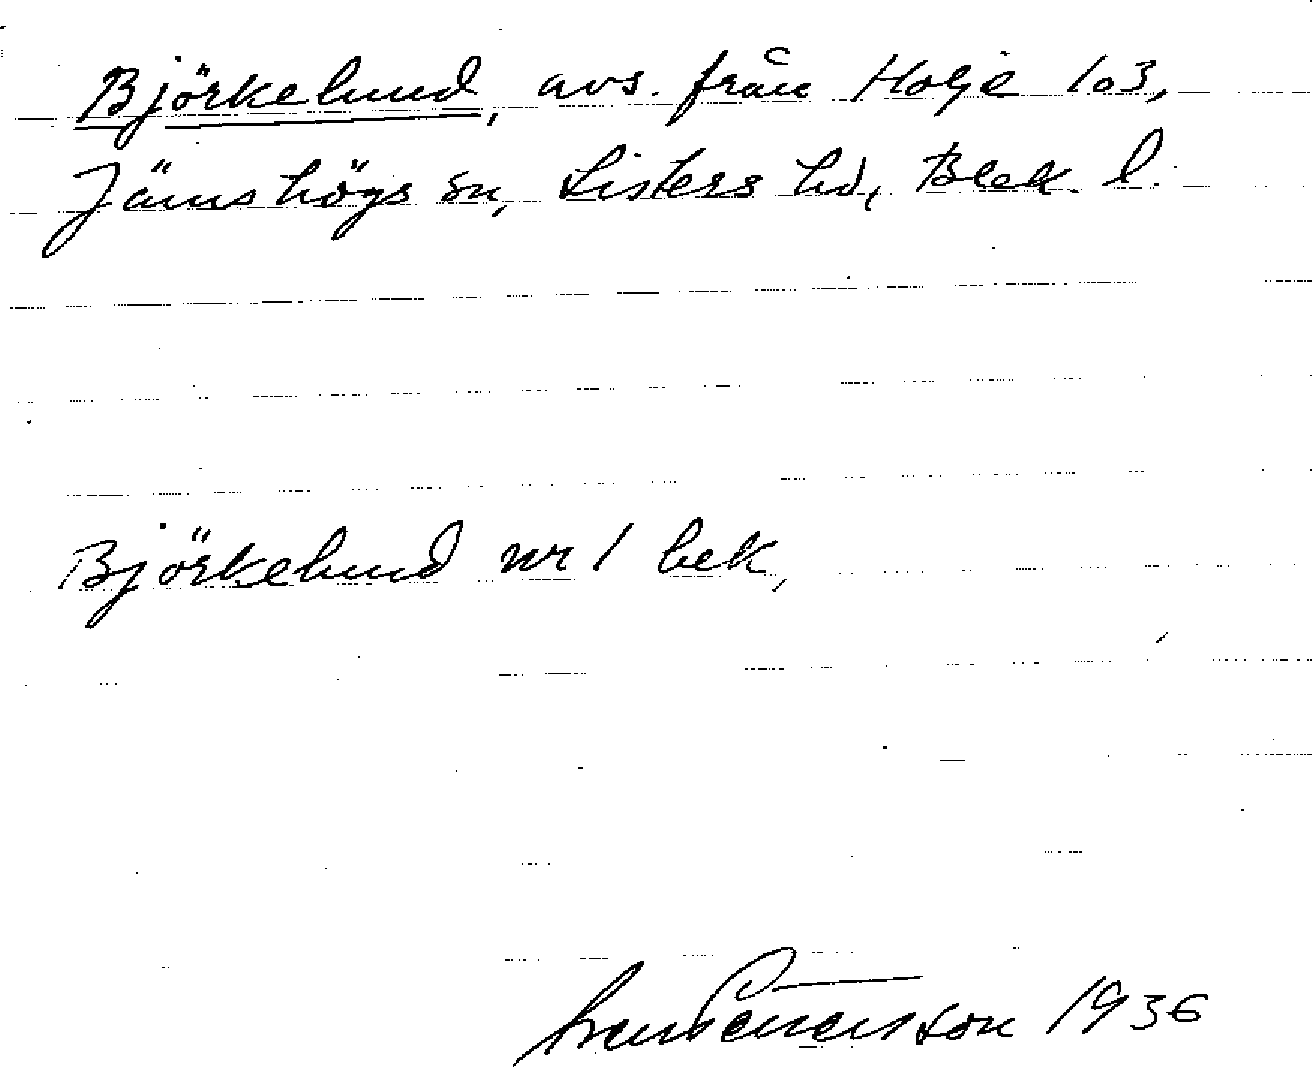 Björkelund, avs. från Holje 103,
Jämshögs sn, Listers hd, Blek. l.
Björkelund nr 1 bek,
1936